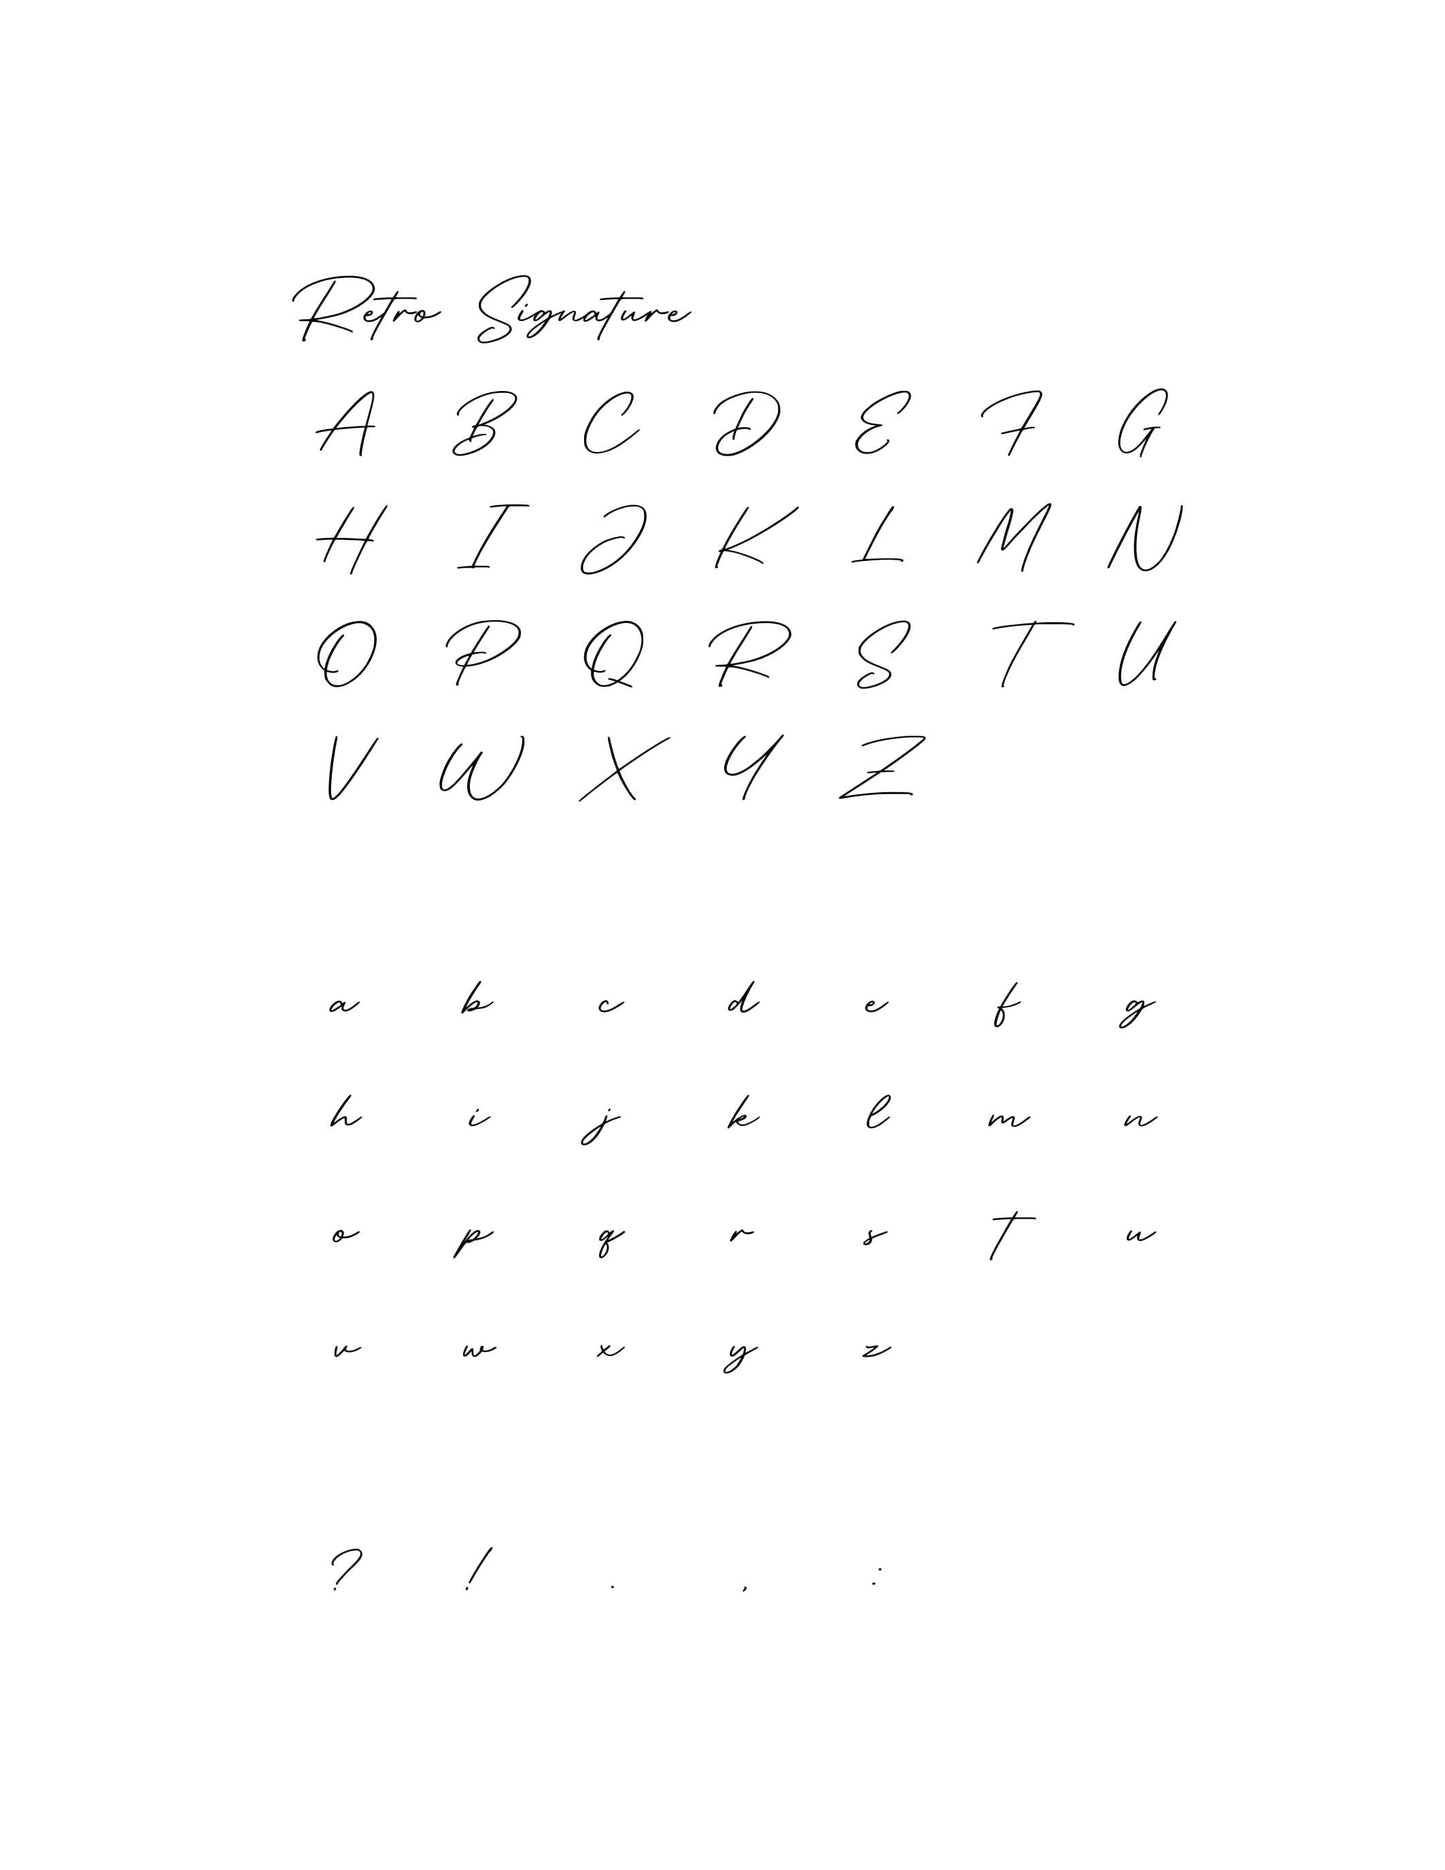 Retro Signature
A B C D E F G
H I J K L M N
O P Q R S T U
V W X Y Z
a b c d e f g
h i j k l m n
o p q r s t u
v w x y z
? ! . , :